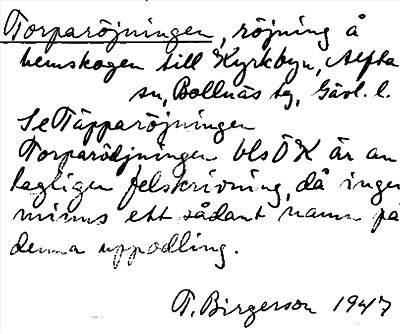 Torparöjningen, röjning å
hemskogen till Kyrkbyn, Alfta
sn, Bollnäs tg, Gävl. l.
Se Täpparöjningen
Torparöjningen bls ÖK är an
tagligen felskrivning, då ingen
minns ett sådant namn på
denna uppodling.
T. Birgerson 1947